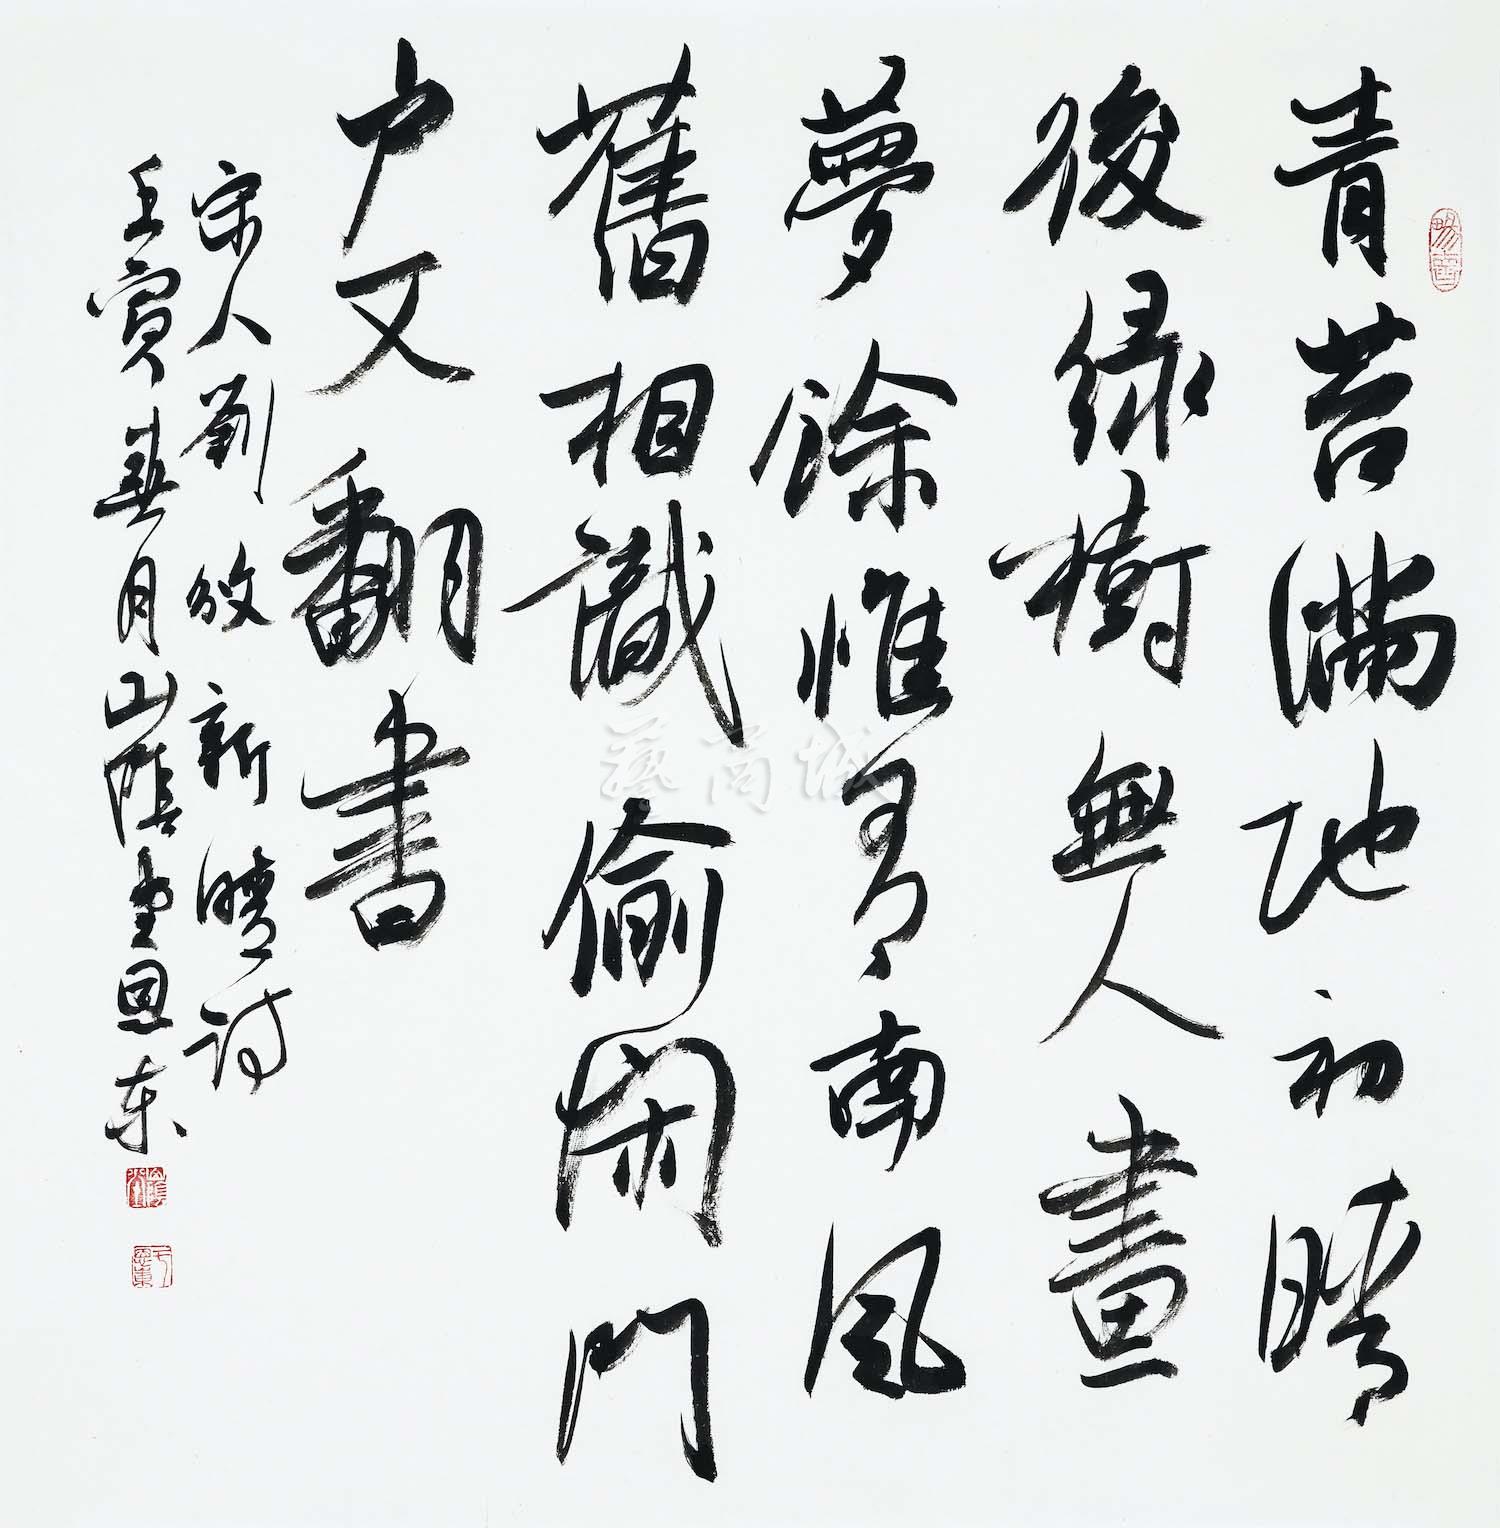 青苔滿地初晴
後緑樹無人晝
夢餘惟有南風
舊相識偷閑門
户又翻書
宋人劉攽新晴詩
壬寅春月山陰堂恩东
藝商城